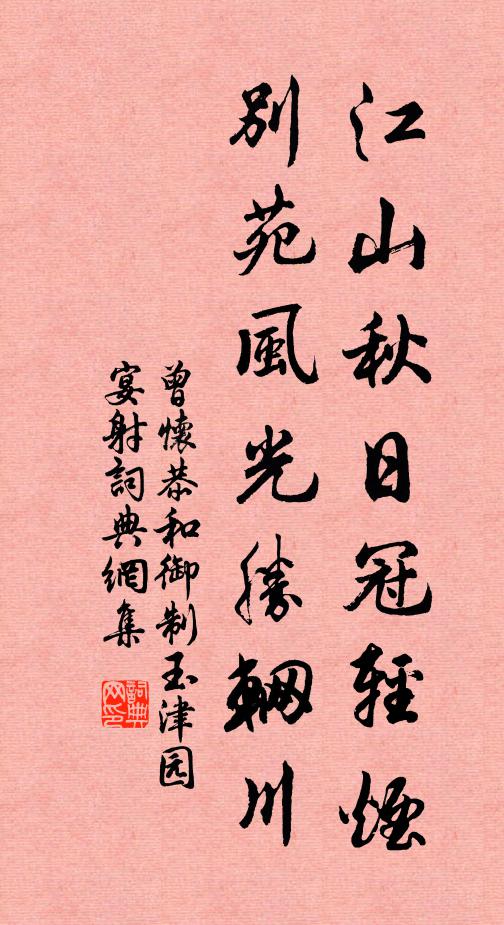 江山秋日冠輕煙
別苑風光勝輞川
曾懷恭和御制玉津园
宴射詞典網集
詞典网印